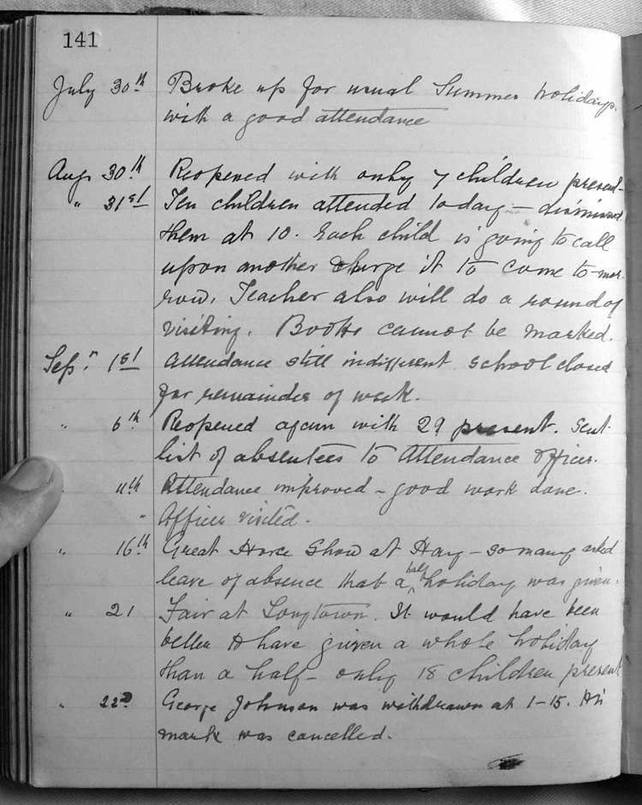 141
July 30th Broke up for usual Summer holidays.
with a good attendance
Aug 30th Reopened with only 7 children present -
" 31st Ten children attended today - dismissed
them at 10. Each child is going to call
upon another & urge it to come to-mor-
row. Teacher also will do a round of
visiting. Books cannot be marked.
Sep. 1st Attendance still indifferent school closed
for remainder of week.
" 6th Reopened again with 29 present. Sent
list of absentees to Attendance Officer.
" 11th Attendance improved - good work done.
" Officer visited.
" 16th Great Horse Show at Hay - so many asked
leave of absence that a half holiday was given.
" 21 Fair at Longtown. It would have been
better to have given a whole holiday
than a half - only 18 children present
" 22nd George Johnson was withdrawn at 1-15. His
mark was cancelled.